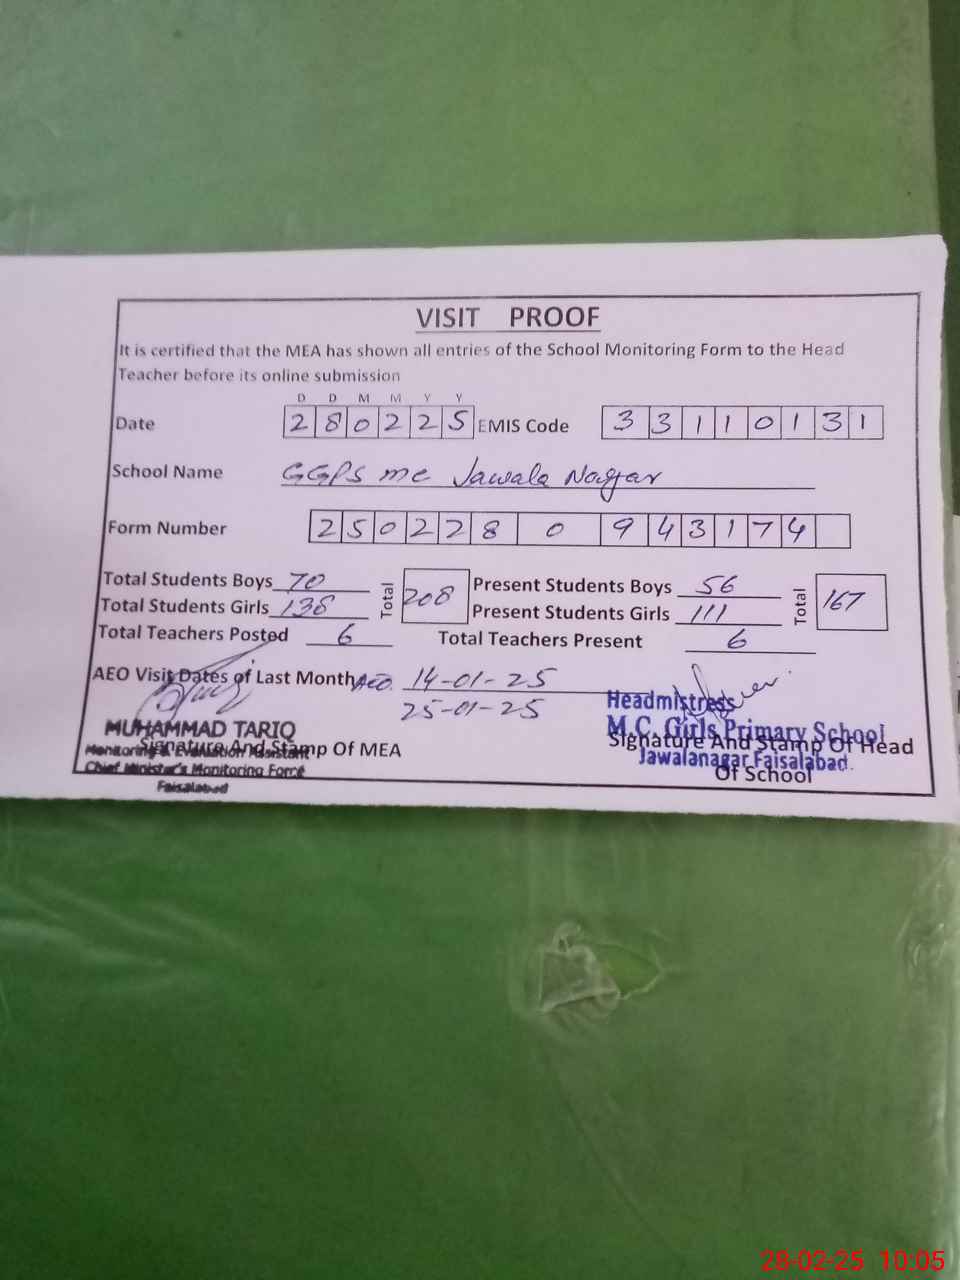 VISIT PROOF
It is certified that the MEA has shown all entries of the School Monitoring Form to the Head
Teacher before its online submission
D D M M Y Y
Date 2 8 0 2 2 5 EMIS Code 3 3 1 1 0 1 3 1
School Name GGPS mc Jawala Nagar
Form Number 2 5 0 2 2 8 0 9 4 3 1 7 4
Total Students Boys 70 Total 208 Present Students Boys 56 Total 167
Total Students Girls 138 Present Students Girls 111
Total Teachers Posted 6 Total Teachers Present 6
AEO Visit Dates of Last Month AEO. 14-01-25
25-01-25
MUHAMMAD TARIQ
Signature And Stamp Of MEA
Monitoring & Evaluation Assistant
Chief Minister's Monitoring Force
Faisalabad
Headmistress
M.C. Girls Primary School
Signature And Stamp Of Head
Jawalanagar Faisalabad.
Of School
28-02-25 10:05